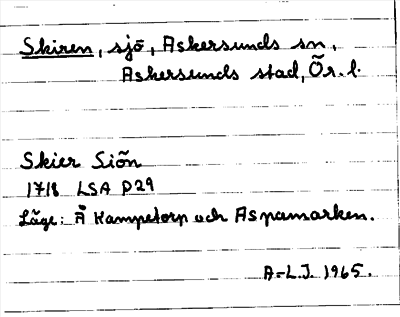 Skiren, sjö, Askersunds sn,
Askersunds stad, Ör. l.
Skier Siön
1718 LSA D29
Läge: Å Kampetorp och Aspamarken.
A-L.J. 1965.